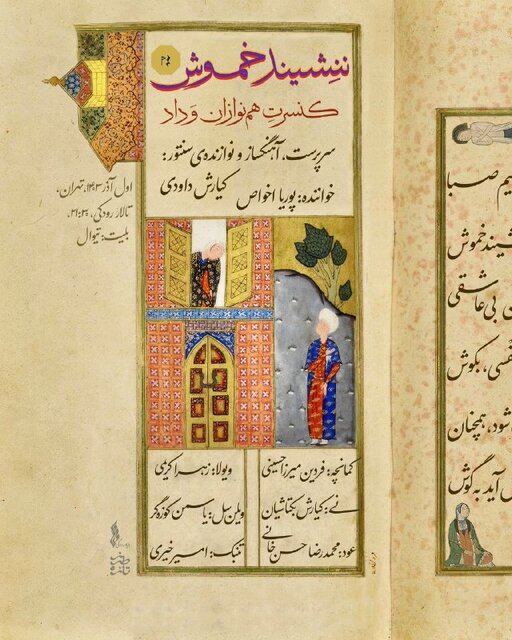 ننشیند خموش
کنسرتِ هم‌نوازان وَداد
سرپرست، آهنگساز و نوازنده‌ی سنتور:
کیارش داودی
خواننده: پوریا اخواص
اول آذر ۱۴۰۳، تهران،
تالار رودکی، ۲۱:۳۰
بلیت: تیوال
کمانچه: فردین میرزاحسینی
ویولا: زهرا اکرمی
نی: کیارش بکتاشیان
ویلن‌سل: یاسمن کوزه‌گر
عود: محمدرضا حسن‌خانی
تنبک: امیر خیری
یم صبا
شیند خموش
بی‌عاشقی
نَفَسی، بکوش
شود، همچنان
آید به گوش